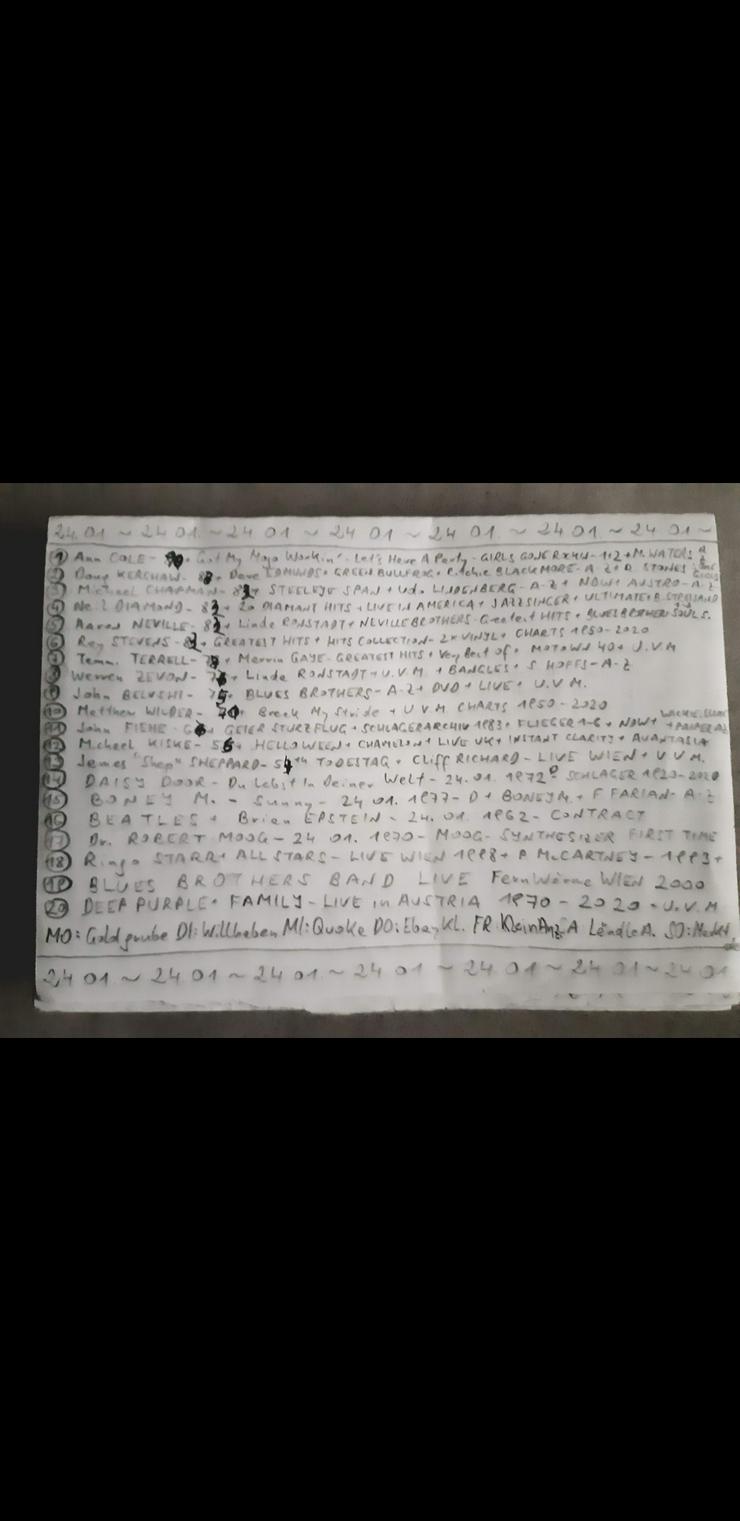 24.01 ~ 24 01. ~ 24 01 ~ 24 01 ~ 24 01 ~ 24 01 ~ 24 01 ~
① Ann COLE - + Got My Mojo Workin' - Let's Have A Party - GIRLS GONE ROCKIN - 1+2 + M. WATERS
② Doug KERSHAW - + Dave EDMUNDS + GREEN BULLFROG + Ritchie BLACKMORE - A-Z + R. STONES
③ Michael CHAPMAN - + STEELEYE SPAN + Udo LINDENBERG - A-Z + NOW + AUSTRO - A-Z
④ Neil DIAMOND - 82 + 20 DIAMANT HITS + LIVE IN AMERICA + JAZZSINGER + ULTIMATE + B. STREISAND
⑤ Aaron NEVILLE - 82 + Linda RONSTADT + NEVILLE BROTHERS - Greatest HITS + BLUES BROTHER SOULS.
⑥ Ray STEVENS - + GREATEST HITS + HITS COLLECTION - 2x VINYL + CHARTS 1950 - 2020
⑦ Tammi TERRELL - + Marvin GAYE - GREATEST HITS + Very Best of + MOTOWN 40 + U.V.M
⑧ Warren ZEVON - + Linda RONSTADT + U.V.M. + BANGLES + S HOFFS - A-Z
⑨ John BELUSHI - + BLUES BROTHERS - A-Z + DVD + LIVE + U.V.M.
⑩ Matthew WILDER - 70 + Break My Stride + U.V.M CHARTS 1950 - 2020
⑪ John FIEHE - + GEIER STURZFLUG + SCHLAGERARCHIV 1983 + FLIEGER 1-6 + NDW +
⑫ Micheel KISKE - 55 + HELLOWEEN + CHAMELEON + LIVE UK + INSTANT CLARITY + AVANTASIA
⑬ James "Shep" SHEPPARD - TODESTAG + Cliff RICHARD - LIVE WIEN + U V M.
⑭ DAISY DOOR - Du Lebst In Deiner Welt - 24. 01. 1972 SCHLAGER 1920 - 2020
⑮ BONEY M. - Sunny - 24 01. 1977 - D + BONEY M. + F FARIAN - A-Z
⑯ BEATLES + Brian EPSTEIN - 24. 01. 1962 - CONTRACT
⑰ Dr. ROBERT MOOG - 24 01. 1970 - MOOG - SYNTHESIZER FIRST TIME
⑱ Ringo STARR + ALL STARS - LIVE WIEN 1998 + P McCARTNEY - 1993 +
⑲ BLUES BROTHERS BAND LIVE FernWärme WIEN 2000
⑳ DEEP PURPLE + FAMILY - LIVE in AUSTRIA 1970 - 2020 - U.V.M
MO: Goldgrube DI: Willhaben MI: Quoke DO: Ebay KL. FR: KleinAnz. Ländle A. SO:
24 01 ~ 24 01 ~ 24 01 ~ 24 01 ~ 24 01 ~ 24 01 ~ 24 01